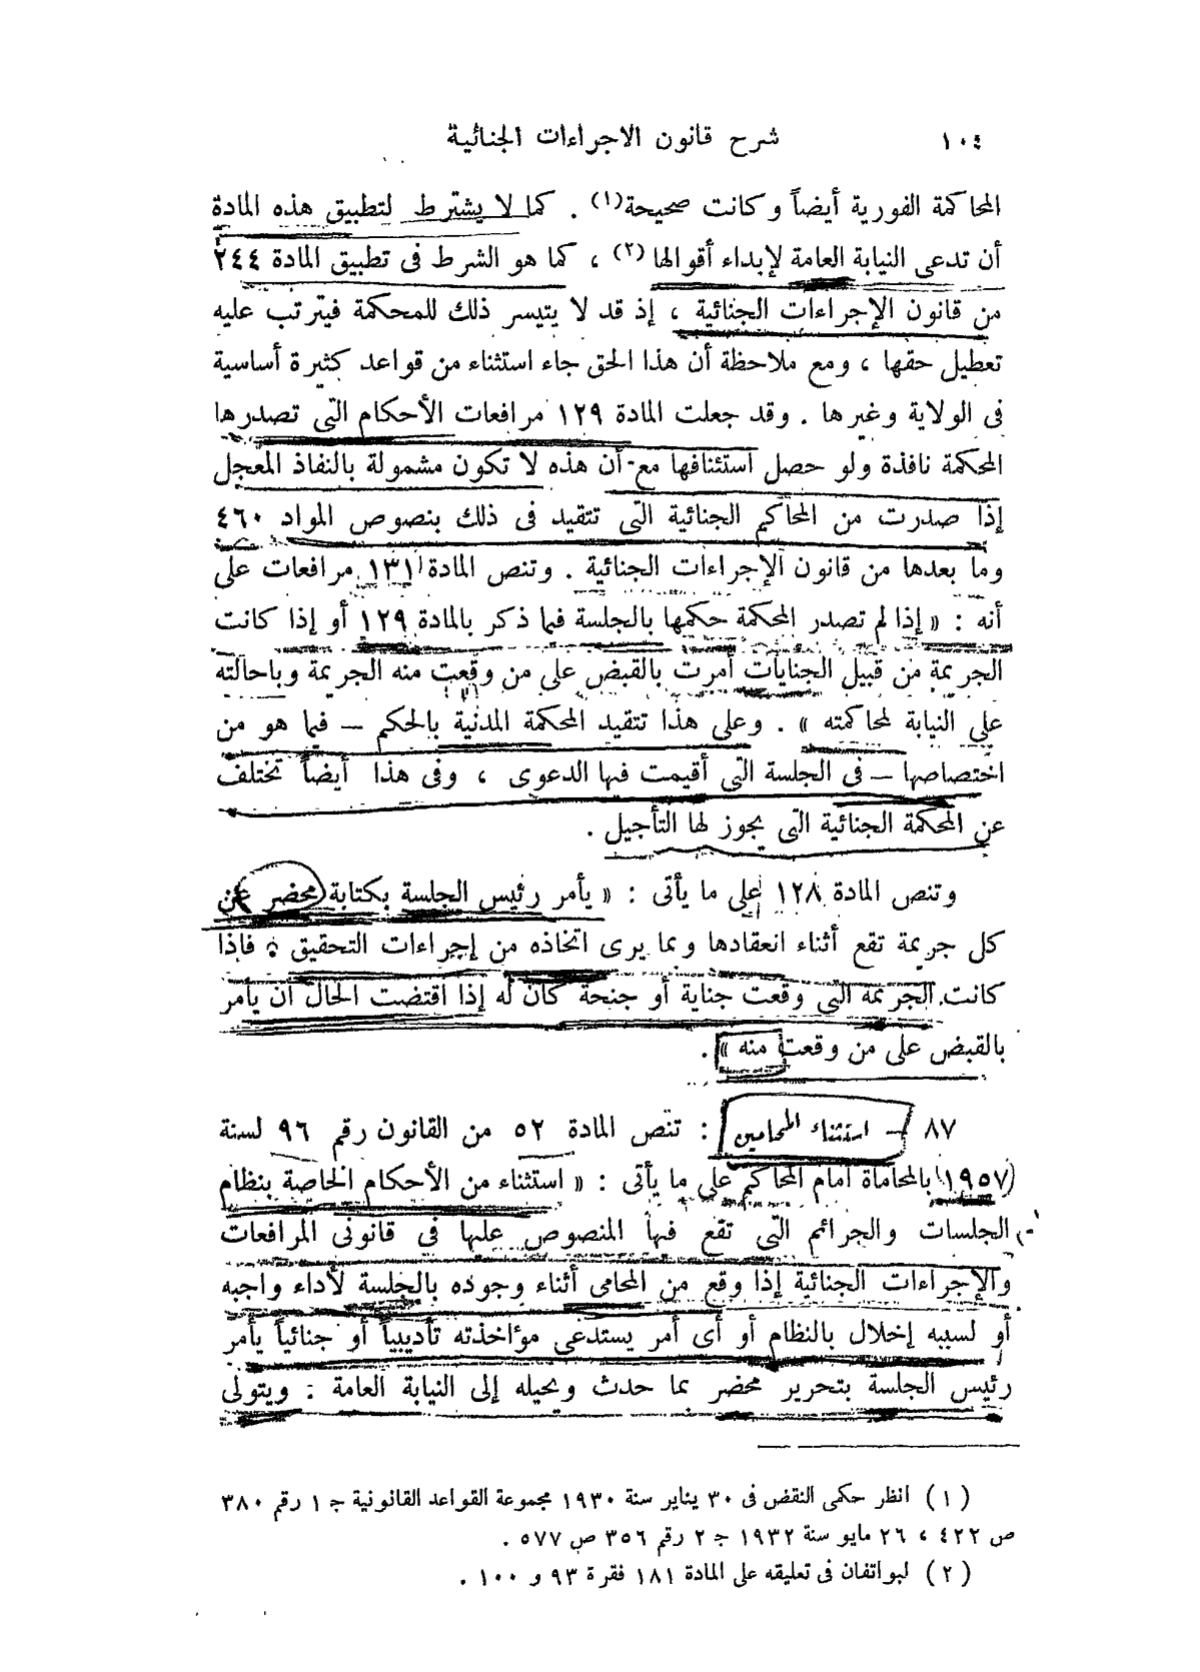 ١٠٤ شرح قانون الاجراءات الجنائية
المحاكمة الفورية أيضاً وكانت صحيحة(١) . كما لا يشترط لتطبيق هذه المادة
أن تدعى النيابة العامة لإبداء أقوالها (٢) ، كما هو الشرط فى تطبيق المادة ٢٤٤
من قانون الإجراءات الجنائية ، إذ قد لا يتيسر ذلك للمحكمة فيترتب عليه
تعطيل حقها ، ومع ملاحظة أن هذا الحق جاء استثناء من قواعد كثيرة أساسية
فى الولاية وغيرها . وقد جعلت المادة ١٢٩ مرافعات الأحكام التى تصدرها
المحكمة نافذة ولو حصل استئنافها مع أن هذه لا تكون مشمولة بالنفاذ المعجل
إذا صدرت من المحاكم الجنائية التى تتقيد فى ذلك بنصوص المواد ٤٦٠
وما بعدها من قانون الإجراءات الجنائية . وتنص المادة ١٣١ مرافعات على
أنه : « إذا لم تصدر المحكمة حكمها بالجلسة فيما ذكر بالمادة ١٢٩ أو إذا كانت
الجريمة من قبيل الجنايات أمرت بالقبض على من وقعت منه الجريمة وباحالته
على النيابة لمحاكمته » . وعلى هذا تتقيد المحكمة المدنية بالحكم – فيما هو من
اختصاصها – فى الجلسة التى أقيمت فيها الدعوى ، وفى هذا أيضاً تختلف
عن المحكمة الجنائية التى يجوز لها التأجيل .
وتنص المادة ١٢٨ على ما يأتى : « يأمر رئيس الجلسة بكتابة محضر عن
كل جريمة تقع أثناء انعقادها وبما يرى اتخاذه من إجراءات التحقيق ، فاذا
كانت الجريمة التى وقعت جناية أو جنحة كان له إذا اقتضت الحال أن يأمر
بالقبض على من وقعت منه » .
٨٧ – استثناء المحامين : تنص المادة ٥٢ من القانون رقم ٩٦ لسنة
١٩٥٧ بالمحاماة أمام المحاكم على ما يأتى : « استثناء من الأحكام الخاصة بنظام
الجلسات والجرائم التى تقع فيها المنصوص عليها فى قانونى المرافعات
والإجراءات الجنائية إذا وقع من المحامى أثناء وجوده بالجلسة لأداء واجبه
أو لسببه إخلال بالنظام أو أى أمر يستدعى مؤاخذته تأديبياً أو جنائياً يأمر
رئيس الجلسة بتحرير محضر بما حدث ويحيله إلى النيابة العامة : ويتولى
(١) انظر حكمى النقض فى ٣٠ يناير سنة ١٩٣٠ مجموعة القواعد القانونية جـ ١ رقم ٣٨٠
ص ٤٢٢ ، ٢٦ مايو سنة ١٩٣٢ جـ ٢ رقم ٣٥٦ ص ٥٧٧ .
(٢) لبواتفان فى تعليقه على المادة ١٨١ فقرة ٩٣ و ١٠٠ .